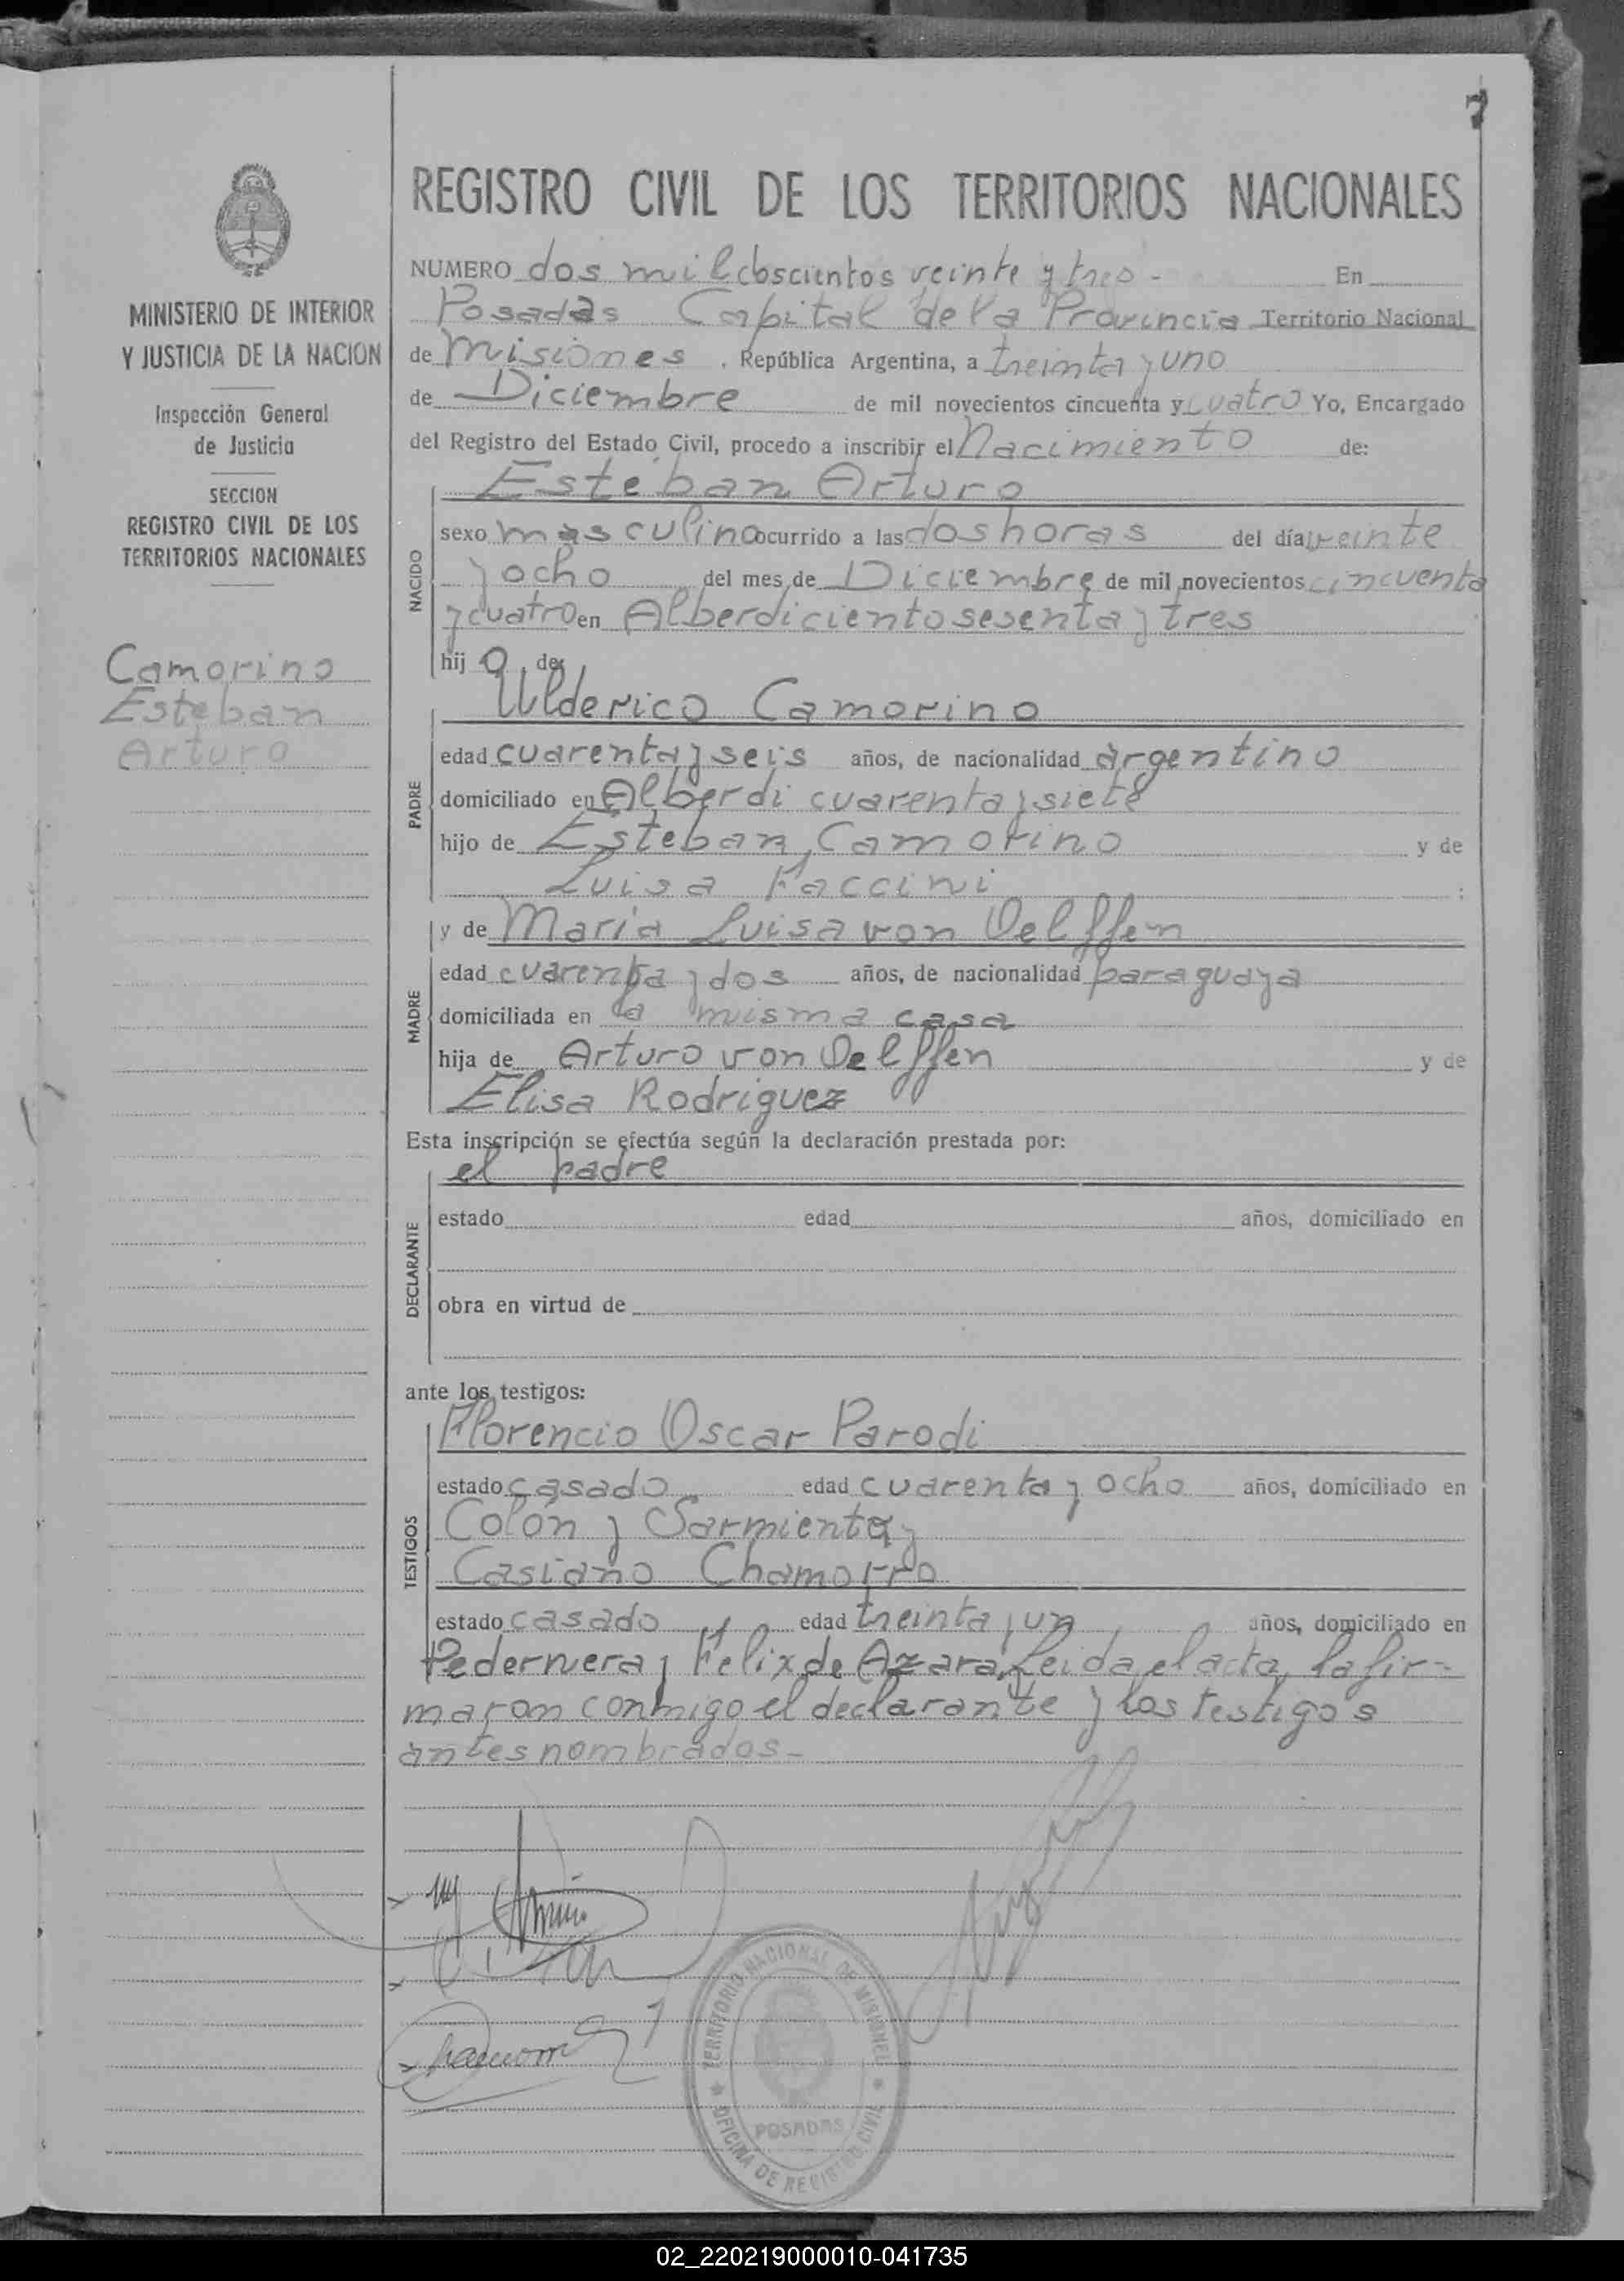 7
REGISTRO CIVIL DE LOS TERRITORIOS NACIONALES
MINISTERIO DE INTERIOR
Y JUSTICIA DE LA NACION
Inspección General
de Justicia
SECCION
REGISTRO CIVIL DE LOS
TERRITORIOS NACIONALES
Camorino
Esteban
Arturo
NUMERO dos mil doscientos veinte y tres - En
Posadas Capital de la Provincia Territorio Nacional
de Misiones, República Argentina, a treinta y uno
de Diciembre de mil novecientos cincuenta y cuatro Yo, Encargado
del Registro del Estado Civil, procedo a inscribir el Nacimiento de:
NACIDO
Esteban Arturo
sexo masculino ocurrido a las dos horas del día veinte
y ocho del mes de Diciembre de mil novecientos cincuenta
y cuatro en Alberdi ciento sesenta y tres
hijo de
PADRE
Ulderico Camorino
edad cuarenta y seis años, de nacionalidad argentino
domiciliado en Alberdi cuarenta y siete
hijo de Esteban Camorino y de
Luisa Faccini ;
y de Maria Luisa von Oelffen
MADRE
edad cuarenta y dos años, de nacionalidad paraguaya
domiciliada en la misma casa
hija de Arturo von Oelffen y de
Elisa Rodriguez
Esta inscripción se efectúa según la declaración prestada por:
el padre
DECLARANTE
estado edad años, domiciliado en
obra en virtud de
ante los testigos:
TESTIGOS
Florencio Oscar Parodi
estado casado edad cuarenta y ocho años, domiciliado en
Colón y Sarmiento y
Casiano Chamorro
estado casado edad treinta y un años, domiciliado en
Pedernera y Felix de Azara, Leida el acta, la fir-
maron conmigo el declarante y los testigos
antes nombrados -
TERRITORIO NACIONAL DE MISIONES
POSADAS
OFICINA DE REGISTRO CIVIL
02_220219000010-041735